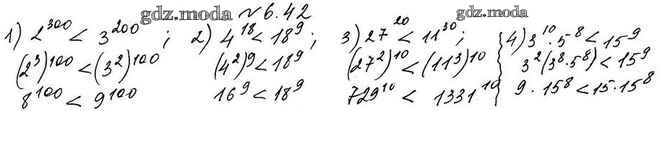 gdz.moda №6.42 gdz.moda
1) 2^300 < 3^200 ; 2) 4^18 < 18^9 ; 3) 27^20 < 11^30 ; 4) 3^10 · 5^8 < 15^9
(2^3)^100 < (3^2)^100 (4^2)^9 < 18^9 (27^2)^10 < (11^3)^10 3^2(3^8·5^8) < 15^9
8^100 < 9^100 16^9 < 18^9 729^10 < 1331^10 9 · 15^8 < 15 · 15^8